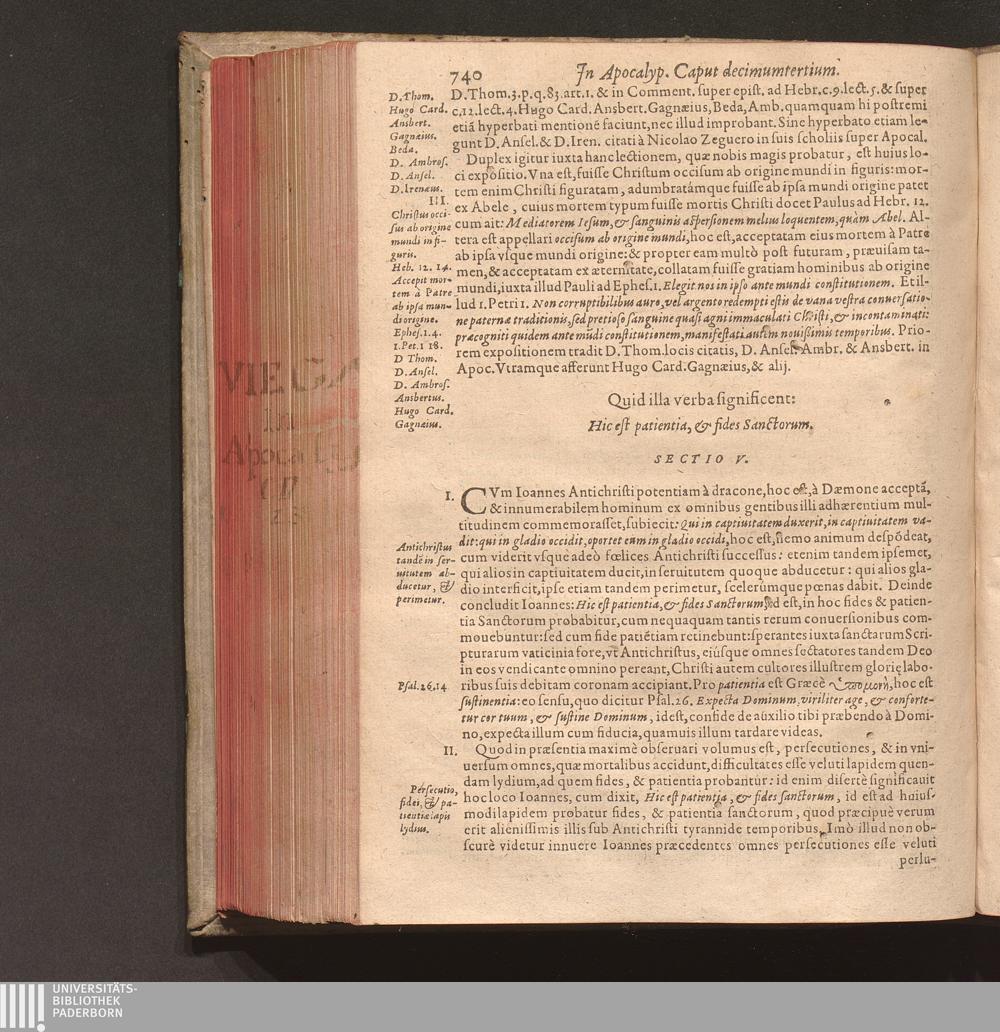 740
In Apocalyp. Caput decimumtertium.
D.Thom.3.p.q.83.art.1. & in Comment. super epist. ad Hebr.c.9.lect.5.& super
c.12.lect.4.Hugo Card.Ansbert.Gagnæius,Beda,Amb.quamquam hi postremi
etiā hyperbati mentionē faciunt,nec illud improbant.Sine hyperbato etiam le-
gunt D.Ansel.& D.Iren. citati à Nicolao Zeguero in suis scholiis super Apocal.
Duplex igitur iuxta hanc lectionem, quæ nobis magis probatur, est huius lo-
ci expositio. Vna est,fuisse Christum occisum ab origine mundi in figuris:mor-
tem enim Christi figuratam, adumbratámque fuisse ab ipsa mundi origine patet
ex Abele, cuius mortem typum fuisse mortis Christi docet Paulus ad Hebr. 12.
cum ait: Mediatorem Iesum,& sanguinis aspersionem melius loquentem,quàm Abel. Al-
tera est appellari occisum ab origine mundi,hoc est,acceptatam eius mortem à Patre
ab ipsa vsque mundi origine:& propter eam multò post futuram, præuisam ta-
men,& acceptatam ex æternitate,collatam fuisse gratiam hominibus ab origine
mundi,iuxta illud Pauli ad Ephes.1.Elegit nos in ipso ante mundi constitutionem. Et il-
lud 1.Petri 1. Non corruptibilibus auro,vel argento redempti estis de vana vestra conuersatio-
ne paternæ traditionis,sed pretioso sanguine quasi agni immaculati Christi,& incontaminati:
præcogniti quidem ante mūdi constitutionem,manifestati autem nouissimis temporibus. Prio-
rem expositionem tradit D.Thom.locis citatis, D. Ansel. Ambr. & Ansbert. in
Apoc.Vtramque afferunt Hugo Card.Gagnæius,& alij.
D.Thom.
Hugo Card.
Ansbert.
Gagnæius.
Beda.
D. Ambros.
D. Ansel.
D.Irenæus.
III.
Christus occi-
sus ab origine
mundi in fi-
guris.
Heb. 12. 14.
Accepit mor-
tem à Patre
ab ipsa mun-
di origine.
Ephes.1.4.
1.Pet.1 18.
D Thom.
D.Ansel.
D. Ambros.
Ansbertus.
Hugo Card.
Gagnæius.
Quid illa verba significent:
Hic est patientia, & fides Sanctorum.
SECTIO V.
I.
CVm Ioannes Antichristi potentiam à dracone,hoc est,à Dæmone acceptā,
& innumerabilem hominum ex omnibus gentibus illi adhærentium mul-
titudinem commemorasset,subiecit: Qui in captiuitatem duxerit,in captiuitatem va-
dit:qui in gladio occidit,oportet eum in gladio occidi,hoc est,nemo animum despōdeat,
cum viderit vsque adeò fœlices Antichristi successus: etenim tandem ipsemet,
qui alios in captiuitatem ducit,in seruitutem quoque abducetur: qui alios gla-
dio interficit,ipse etiam tandem perimetur, scelerúmque pœnas dabit. Deinde
concludit Ioannes: Hic est patientia,& fides Sanctorum,id est,in hoc fides & patien-
tia Sanctorum probabitur,cum nequaquam tantis rerum conuersionibus com-
mouebuntur:sed cum fide patiētiam retinebunt:sperantes iuxta sanctarum Scri-
pturarum vaticinia fore,vt Antichristus, eiúsque omnes sectatores tandem Deo
in eos vendicante omnino pereant,Christi autem cultores illustrem glorię labo-
ribus suis debitam coronam accipiant.Pro patientia est Græcè ὑπομονὴ,hoc est
sustinentia: eo sensu,quo dicitur Psal.26. Expecta Dominum,viriliter age, & conforte-
tur cor tuum, & sustine Dominum, idest,confide de auxilio tibi præbendo à Domi-
no,expecta illum cum fiducia,quamuis illum tardare videas.
Antichristus
tandē in ser-
uitutem ab-
ducetur, &
perimetur.
Psal.26.14
II.
Quod in præsentia maximè obseruari volumus est, persecutiones, & in vni-
uersum omnes,quæ mortalibus accidunt,difficultates esse veluti lapidem quen-
dam lydium,ad quem fides, & patientia probantur: id enim disertè significauit
hoc loco Ioannes, cum dixit, Hic est patientia, & fides sanctorum, id est ad huius-
modi lapidem probatur fides, & patientia sanctorum, quod præcipuè verum
erit alienissimis illis sub Antichristi tyrannide temporibus. Imò illud non ob-
scurè videtur innuere Ioannes præcedentes omnes persecutiones esse veluti
perlu-
Persecutio,
fidei, & pa-
tientiæ lapis
lydius.
VIEGA
In
Apoca
UNIVERSITÄTS-
BIBLIOTHEK
PADERBORN